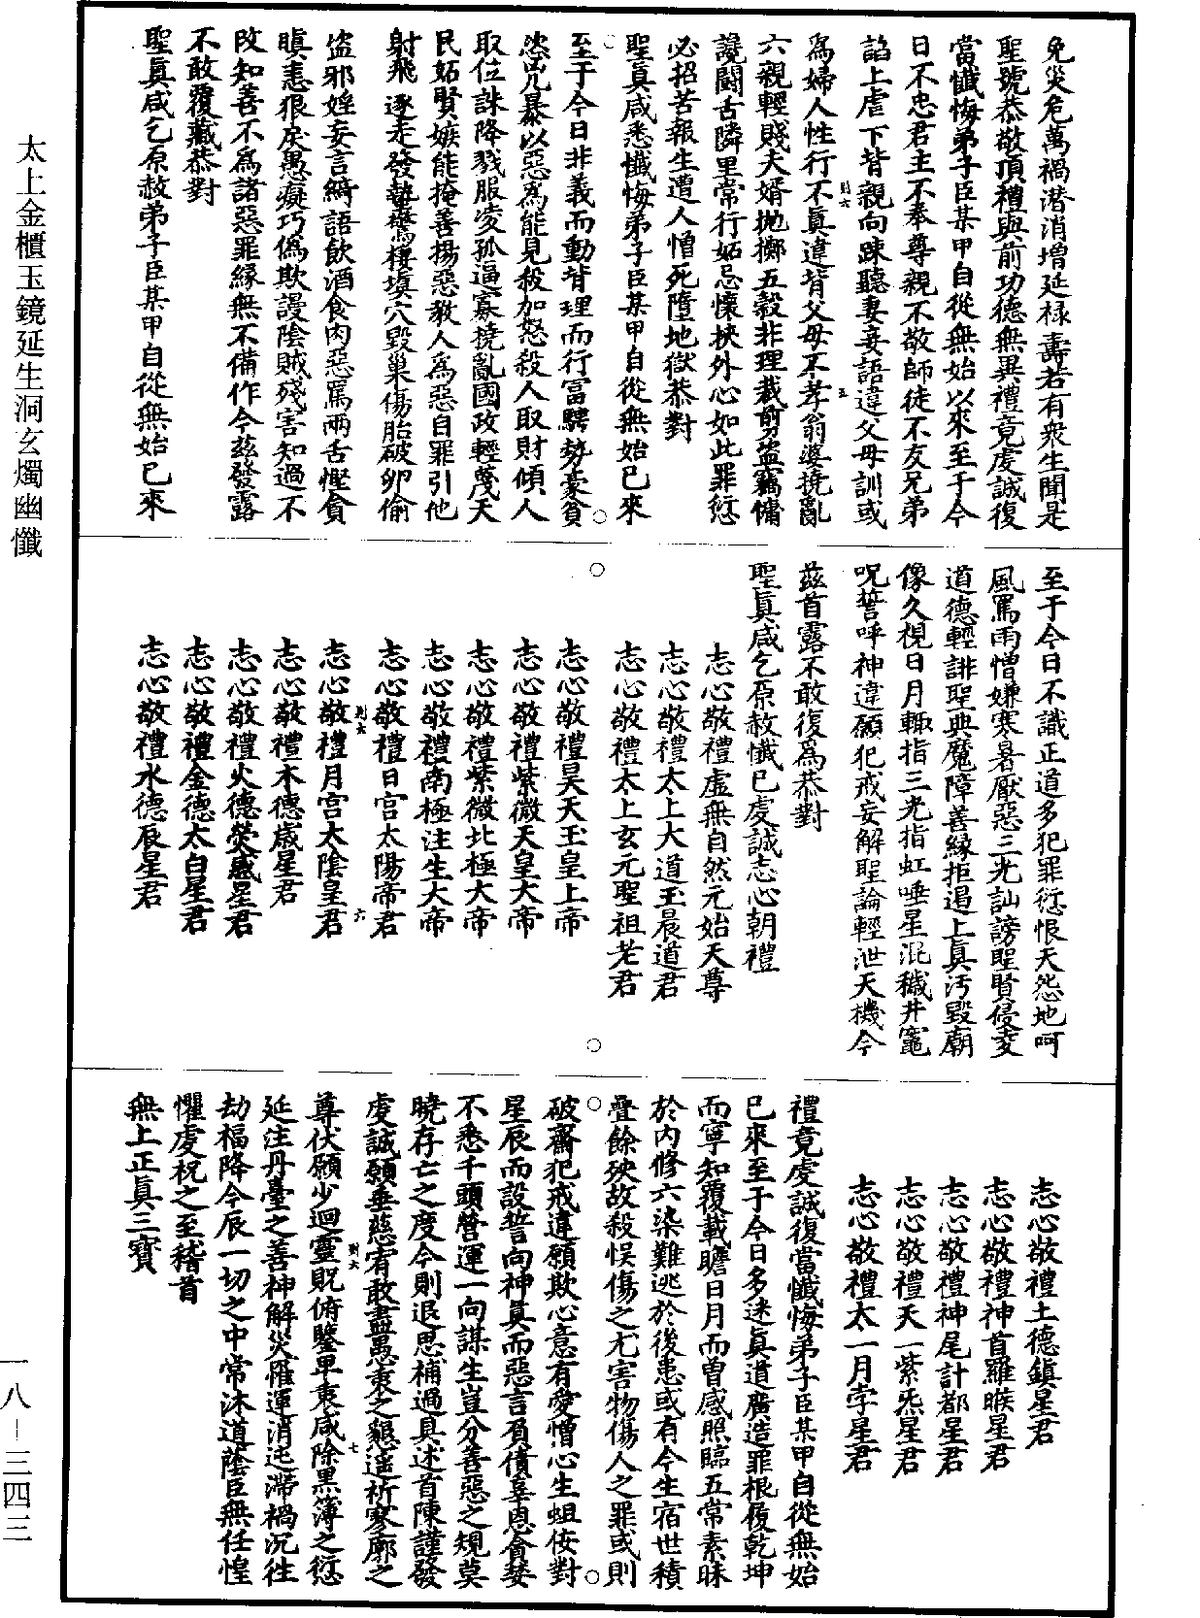 太上金櫃玉鏡延生洞玄燭幽懺
免災危萬禍潛消增延祿壽若有衆生聞是
聖號恭敬頂禮與前功德無異禮竟虔誠復
當懺悔弟子臣某甲自從無始以來至于今
日不忠君主不奉尊親不敬師徒不友兄弟
諂上虐下背親向踈聽妻妾語違父母訓或
為婦人性行不眞違背父母不孝翁婆撓亂
六親輕賤夫婿抛擲五穀非理裁剪盜竊傭
讒鬭舌隣里常行妬忌懷挾外心如此罪愆
必招苦報生遭人憎死墮地獄恭對
聖眞咸悉懺悔弟子臣某甲自從無始已來
至于今日非義而動背理而行冨驕勢豪貧
怨咒暴以惡為能見殺加怒殺人取財傾人
取位誅降戮服凌孤逼寡撓亂國政輕蔑天
民妬賢嫉能掩善揚惡教人為惡自罪引他
射飛逐走發蟄驚棲塡穴毀巢傷胎破卵偷
盜邪婬妄言綺語飲酒食肉惡罵兩舌慳貪
瞋恚狠戾愚癡巧偽欺謾陰賊殘害知過不
改知善不為諸惡罪緣無不備作今茲發露
不敢覆藏恭對
聖眞咸乞原赦弟子臣某甲自從無始已來
至于今日不識正道多犯罪愆恨天怨地呵
風罵雨憎嫌寒暑厭惡三光訕謗聖賢侵夌
道德輕誹聖典魔障善緣拒遏上眞汚毀廟
像久視日月輙指三光指虹唾星混穢井竈
呪誓呼神違願犯戒妄解聖論輕泄天機今
茲首露不敢復為恭對
聖眞咸乞原赦懺已虔誠志心朝禮
志心敬禮虛無自然元始天尊
志心敬禮太上大道玉晨道君
志心敬禮太上玄元聖祖老君
志心敬禮昊天玉皇上帝
志心敬禮紫微天皇大帝
志心敬禮紫微北極大帝
志心敬禮南極注生大帝
志心敬禮日宮太陽帝君
志心敬禮月宮太陰皇君
志心敬禮木德歲星君
志心敬禮火德熒惑星君
志心敬禮金德太白星君
志心敬禮水德辰星君
志心敬禮土德鎮星君
志心敬禮神首羅睺星君
志心敬禮神尾計都星君
志心敬禮天一紫炁星君
志心敬禮太一月孛星君
禮竟虔誠復當懺悔弟子臣某甲自從無始
已來至于今日多迷眞道廣造罪根履乾坤
而寧知覆載瞻日月而曽感照臨五常素昧
於内修六染難逃於後患或有今生宿世積
疊餘殃故殺悞傷之尤害物傷人之罪或則
破齋犯戒違願欺心意有愛憎心生蛆侫對
星辰而設誓向神眞而惡言負債辜恩貪婪
不悉千頭營運一向謀生豈分善惡之規莫
曉存亡之度今則退思補過具述首陳謹發
虔誠願垂慈宥敢盡愚衷之懇遥祈寥廓之
尊伏願少迴靈貺俯鑒卑衷咸除黒簿之愆
延注丹臺之善神解災羅運消迍滯禍沉徃
劫福降今辰一切之中常沐道蔭臣無任惶
懼虔祝之至稽首
無上正眞三寶
一八－三四三